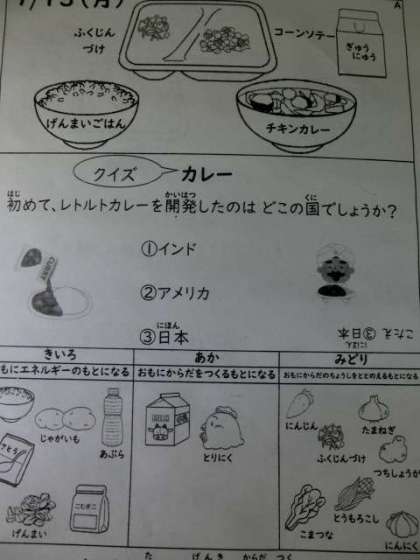 7/15(月)
A
ふくじんづけ
コーンソテー
ぎゅうにゅう
げんまいごはん
チキンカレー
クイズ
カレー
初めて、レトルトカレーを開発したのは どこの国でしょうか?
はじ かいはつ くに
①インド
②アメリカ
③日本
にほん
こたえ ③日本
にほん
きいろ
あか
みどり
もにエネルギーのもとになる
おもにからだをつくるもとになる
おもにからだのちょうしをととのえるもとになる
じゃがいも
あぶら
さとう
げんまい
こむぎこ
とりにく
にんじん
たまねぎ
ふくじんづけ
つちしょうが
こまつな
とうもろこし
にんにく
た げんき からだ つく